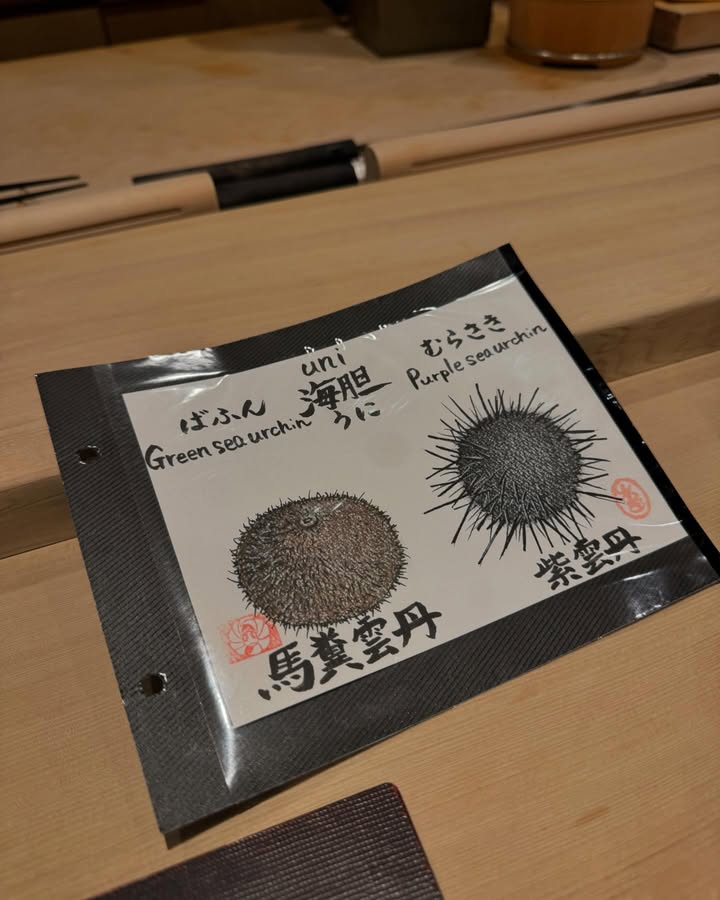 uni
海胆
うに
ばふん
Green sea urchin
馬糞雲丹
むらさき
Purple sea urchin
紫雲丹